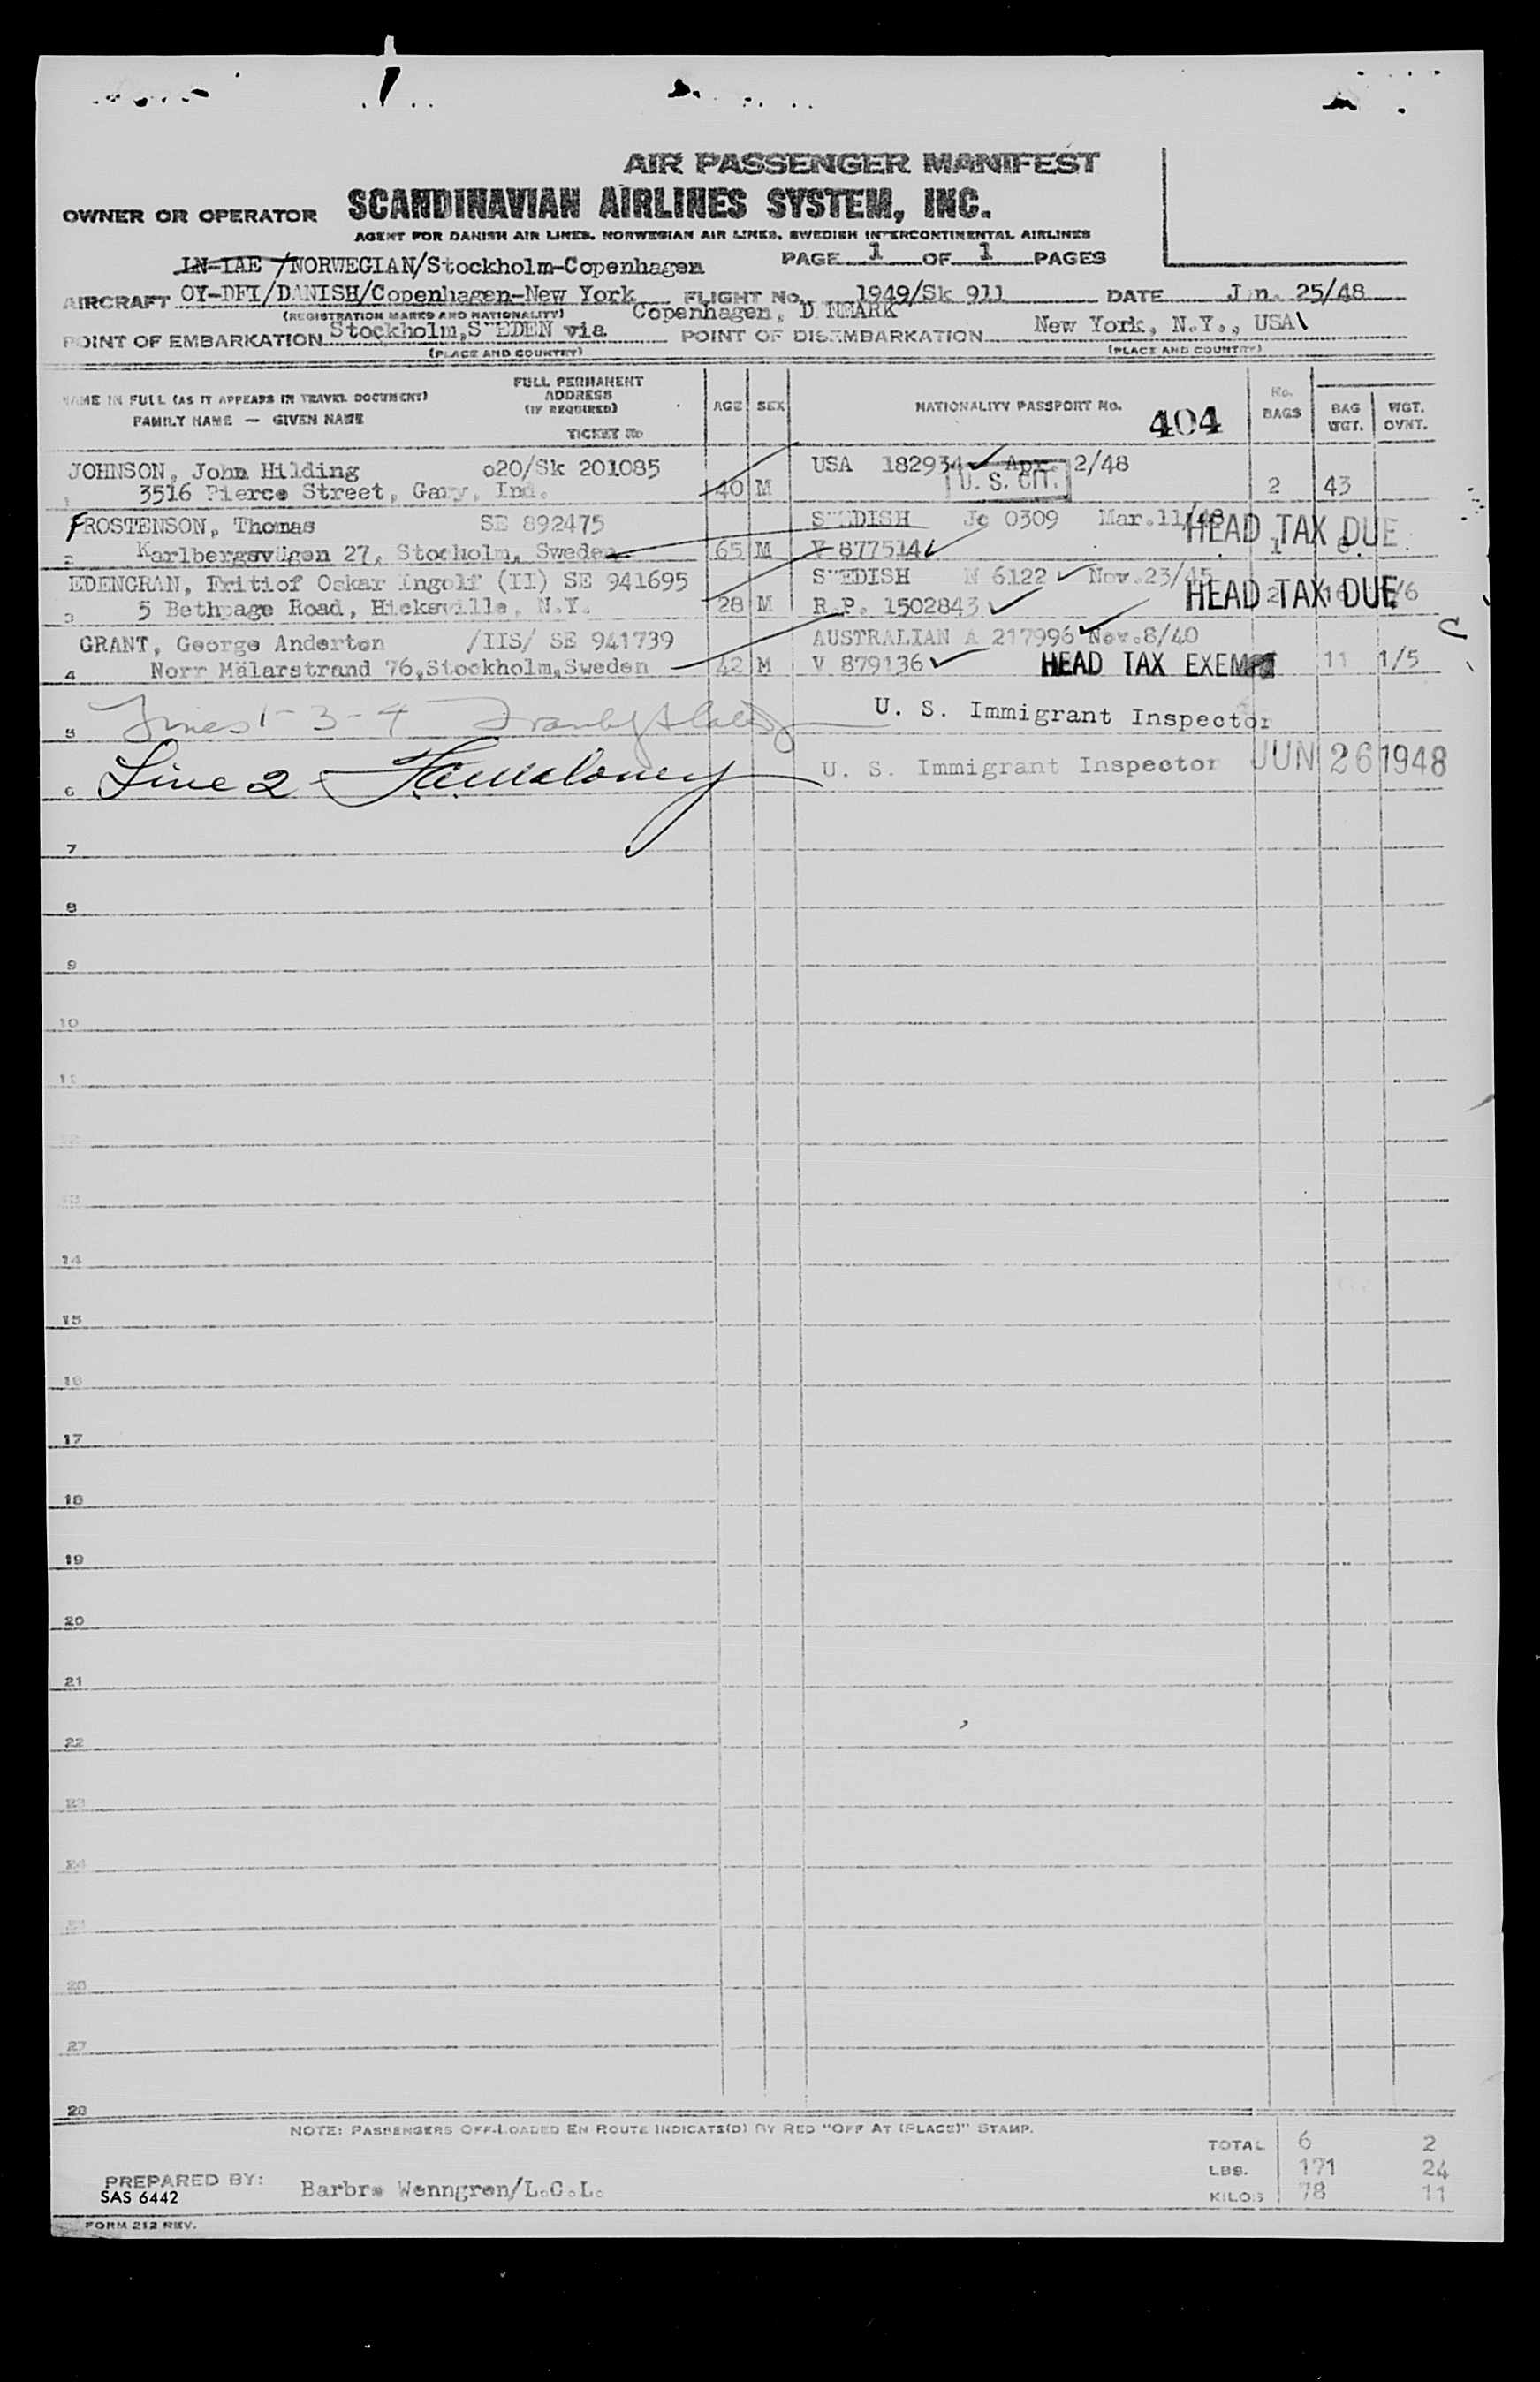 AIR PASSENGER MANIFEST
OWNER OR OPERATOR SCANDINAVIAN AIRLINES SYSTEM, INC.
AGENT FOR DANISH AIR LINES, NORWEGIAN AIR LINES, SWEDISH INTERCONTINENTAL AIRLINES
LN-IAE /NORWEGIAN/Stockholm-Copenhagen PAGE 1 OF 1 PAGES
AIRCRAFT OY-DFI/DANISH/Copenhagen-New York FLIGHT No. 1949/Sk 911 DATE J n. 25/48
(REGISTRATION MARKS AND NATIONALITY) Copenhagen, D NMARK
POINT OF EMBARKATION Stockholm,SWEDEN via POINT OF DISEMBARKATION New York, N.Y., USA
(PLACE AND COUNTRY) (PLACE AND COUNTRY)
NAME IN FULL (AS IT APPEARS IN TRAVEL DOCUMENT) FULL PERMANENT ADDRESS (IF REQUIRED) AGE SEX NATIONALITY PASSPORT No. 404 No. BAGS BAG WGT. WGT. OVNT.
FAMILY NAME — GIVEN NAME TICKET No
JOHNSON, John Hilding o20/Sk 201085 USA 182934 Apr. 2/48
1 3516 Pierce Street, Gary, Ind. 40 M U. S. CIT. 2 43
FROSTENSON, Thomas SE 892475 SWEDISH Jc 0309 Mar.11/48 HEAD TAX DUE
2 Karlbergsvügen 27, Stocholm, Sweden 65 M V 877514 1 8
EDENGRAN, Fritiof Oskar Ingolf (II) SE 941695 SWEDISH N 6122 Nov.23/45
3 5 Bethpage Road, Hicksville, N.Y. 28 M R.P. 1502843 HEAD TAX DUE 2 16 /6
GRANT, George Anderton /IIS/ SE 941739 AUSTRALIAN A 217996 Nov.8/40
4 Norr Mälarstrand 76,Stockholm,Sweden 42 M V 879136 HEAD TAX EXEMPT 11 1/5
5 Lines 1-3-4 U. S. Immigrant Inspector
6 Line 2 U. S. Immigrant Inspector JUN 26 1948
7
8
9
10
11
12
13
14
15
16
17
18
19
20
21
22
23
24
25
26
27
28
NOTE: PASSENGERS OFF-LOADED EN ROUTE INDICATE(D) BY RED "OFF AT (PLACE)" STAMP.
TOTAL 6 2
LBS. 171 24
PREPARED BY: Barbro Wenngren/L.C.L.
SAS 6442
KILOS 78 11
FORM 212 REV.